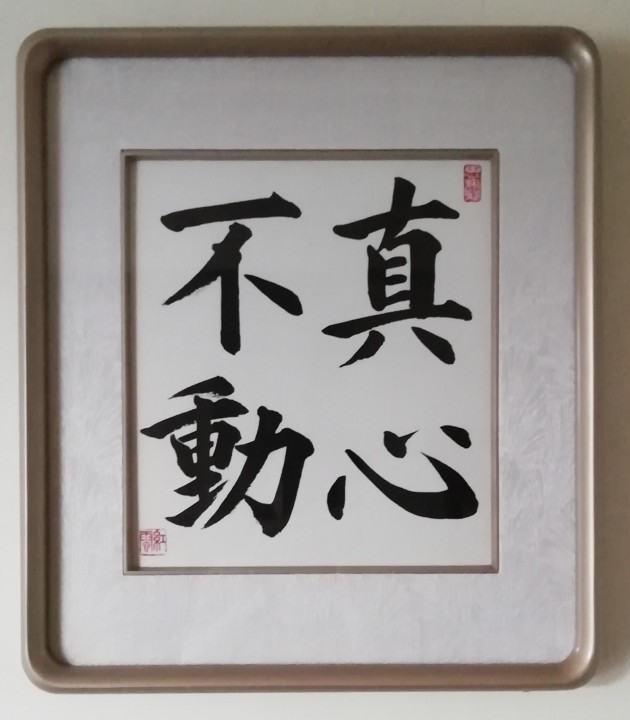 真心
不動